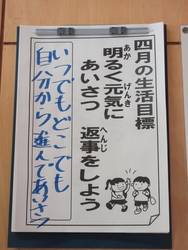 四月の生活目標
明るく元気に
あか
げんき
あいさつ 返事をしよう
へんじ
いつでもどこでも
自分から進んであいさつ